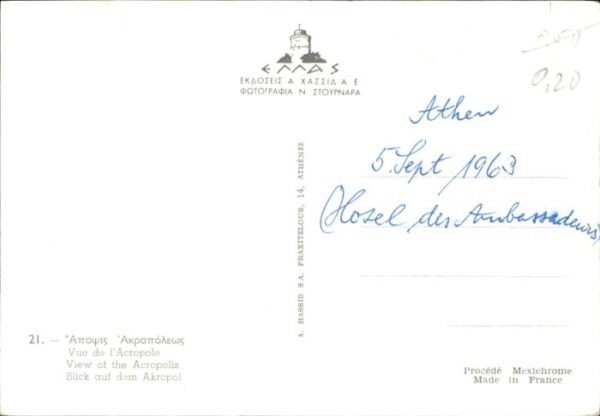 ΕΛΛΑΣ
ΕΚΔΟΣΕΙΣ Α ΧΑΣΣΙΔ Α Ε
ΦΩΤΟΓΡΑΦΙΑ Ν ΣΤΟΥΡΝΑΡΑ
0,20
Athen
5 Sept 1963
(Hotel des Ambassadeurs)
A. HASSID S.A. PRAXITELOUS, 14, ATHÈNES
21. — Ἄποψις Ἀκροπόλεως
Vue de l'Acropole
View of the Acropolis
Blick auf dem Akropol
Procédé Mexichrome
Made in France